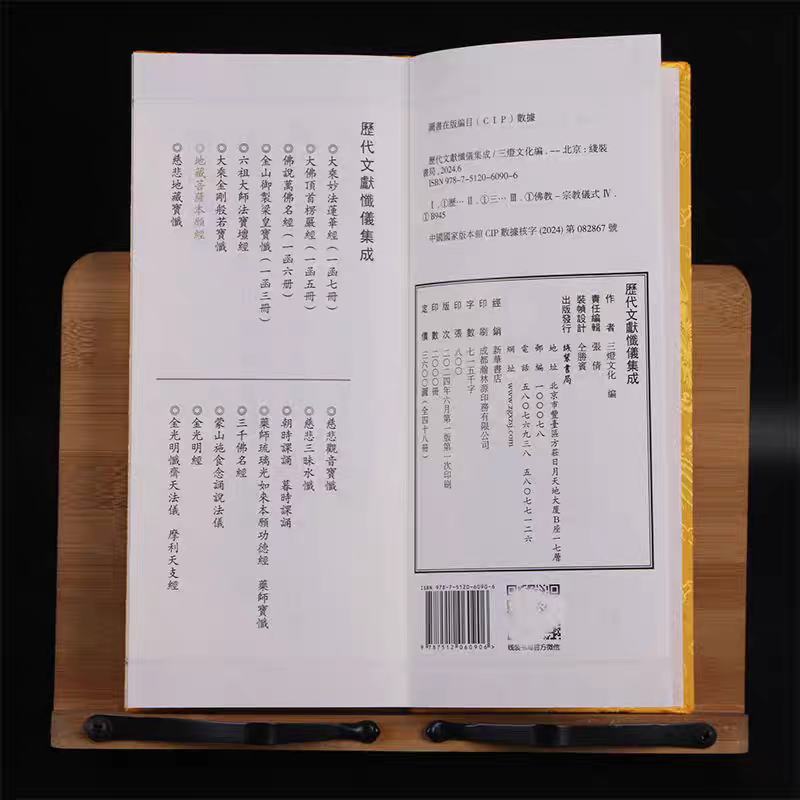 歷代文獻懺儀集成
◎大乘妙法蓮華經(一函七冊)
◎大佛頂首楞嚴經(一函五冊)
◎佛說萬佛名經(一函六冊)
◎金山御製梁皇寶懺(一函三冊)
◎六祖大師法寶壇經
◎大乘金剛般若寶懺
◎地藏菩薩本願經
◎慈悲地藏寶懺
◎慈悲觀音寶懺
◎慈悲三昧水懺
◎朝時課誦 暮時課誦
◎藥師琉璃光如來本願功德經 藥師寶懺
◎三千佛名經
◎蒙山施食念誦說法儀
◎金光明經
◎金光明懺齋天法儀 摩利天支經
圖書在版編目(CIP)數據
歷代文獻懺儀集成/三燈文化編. -- 北京:綫裝
書局,2024.6
ISBN 978-7-5120-6090-6
Ⅰ.①歷… Ⅱ.①三… Ⅲ.①佛教-宗教儀式 Ⅳ.
①B945
中國國家版本館CIP數據核字(2024)第082867號
歷代文獻懺儀集成
作者 三燈文化 編
責任編輯 張倩
裝幀設計 仝勝賓
出版發行 綫裝書局
地址 北京市豐臺區方莊日月天地大廈B座一七層
郵編 一〇〇〇七八
電話 五八〇七六九三八 五八〇七七一二六
網址 www.zgxzsj.com
經銷 新華書店
印刷 成都瀚林源印務有限公司
字數 七一五千字
印張 八〇〇
版次 二〇二四年六月第一版第一次印刷
印數 二〇〇〇冊
定價 三六〇〇圓(全四十八冊)
ISBN 978-7-5120-6090-6
9 787512 060906 >
线装书局官方微信